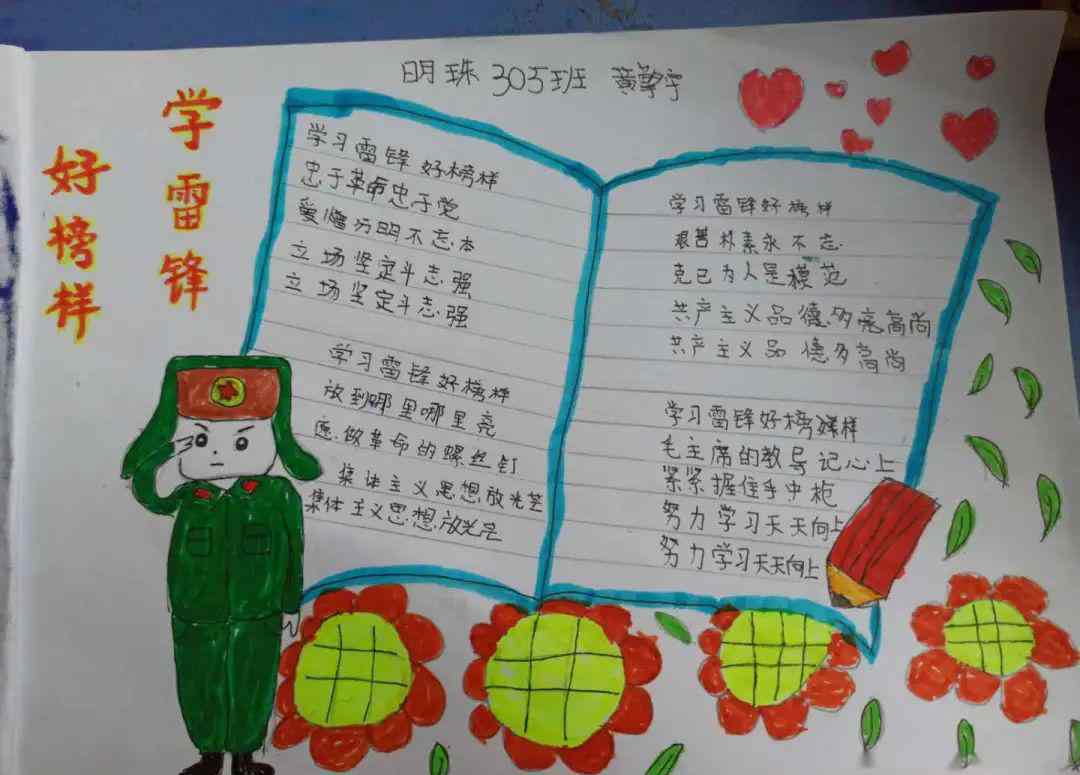 学雷锋
好榜样
明珠 305班
学习雷锋好榜样
忠于革命忠于党
爱憎分明不忘本
立场坚定斗志强
立场坚定斗志强
学习雷锋好榜样
放到哪里哪里亮
愿做革命的螺丝钉
集体主义思想放光芒
集体主义思想放光芒
学习雷锋好榜样
艰苦朴素永不忘
克己为人是模范
共产主义品德多亮高尚
共产主义品德多高尚
学习雷锋好榜样
毛主席的教导记心上
紧紧握住手中枪
努力学习天天向上
努力学习天天向上